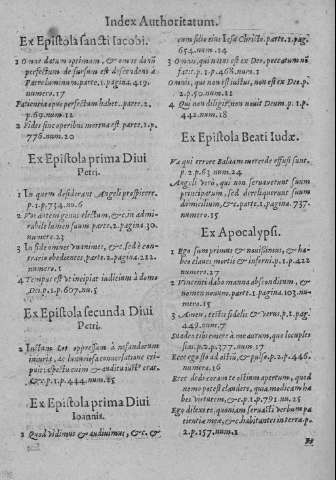 Index Authoritatum.
Ex Epistola sancti Iacobi.
1 Omne datum optimum, & omne donū
perfectum de sursum est discendens à
Patre luminum. parte. 1. pagina. 419.
numero. 17
Patientia opus perfectum habet. parte. 2.
p. 69. num. 12
2 Fides sine operibus mortua est parte. 1. p.
776. num. 20
Ex Epistola prima Diui
Petri.
1 In quem desiderant Angeli prospicere.
p. 1. p. 734. nu. 6
2 Vos autem genus electum, & in admi-
rabile lumen suum parte. 2. pagina. 30.
numero. 23
3 In fide omnes vnanimes, &c. sed è con-
trario obedientes parte. 2. pagina. 212.
numero. 1
4 Tempus est vt incipiat iudicium à domo
Dei. p. 1. p. 607. nu. 5
Ex Epistola secunda Diui
Petri.
2 Iustum Lot oppressum à nefandorum
iniuria, ac
&c. p. 1. p. 444. num. 25
Ex Epistola prima Diui
Ioannis.
1 Quod vidimus & audiuimus, &c. &
cum filio eius Iesu Christo. parte. 1. pag.
654. num. 14
3 Omnis, qui natus est ex Deo, peccatum nō
facit. p. 1. p. 468. num. 1
Omnis, qui non est iustus, non est ex Deo. p.
2. p. 50. num. 11
4 Qui non diligit, non nouit Deum. p. 1. p.
442. num. 18
Ex Epistola Beati Iudæ.
Væ qui errore Balaam mercede effusi sunt.
p. 2. p. 63. num. 24
Angeli vero, qui non seruauerunt suum
principatum, sed dereliquerunt suum
domicilium, &c. parte. 1. pagina. 737.
numero. 15
Ex Apocalypsi.
1 Ego sum primus & nouissimus, & ha-
beo claues mortis & inferni. p. 1. p. 422
numero. 27
2 Vincenti dabo manna absconditum, &
nomen nouum. parte. 1. pagina. 103. nu-
mero. 15
3 Amen, testis fidelis & verus. p. 1. pag.
449. num. 7
Suadeo tibi emere à me aurum, quo locuples
fias. p. 2. p. 377. num. 17
Ecce ego sto ad ostiū, & pulso. p. 2. p. 446.
numero. 16
Ecce dedi coram te ostium apertum, quod
nemo potest claudere, quia modicam ha
bes virtutem, &c. p. 1. p. 791. nu. 25
Ego dilexi te, quoniam seruasti verbum pa
tientiæ meæ, & c habitantes in terra. p.
2. p. 157. num. 1